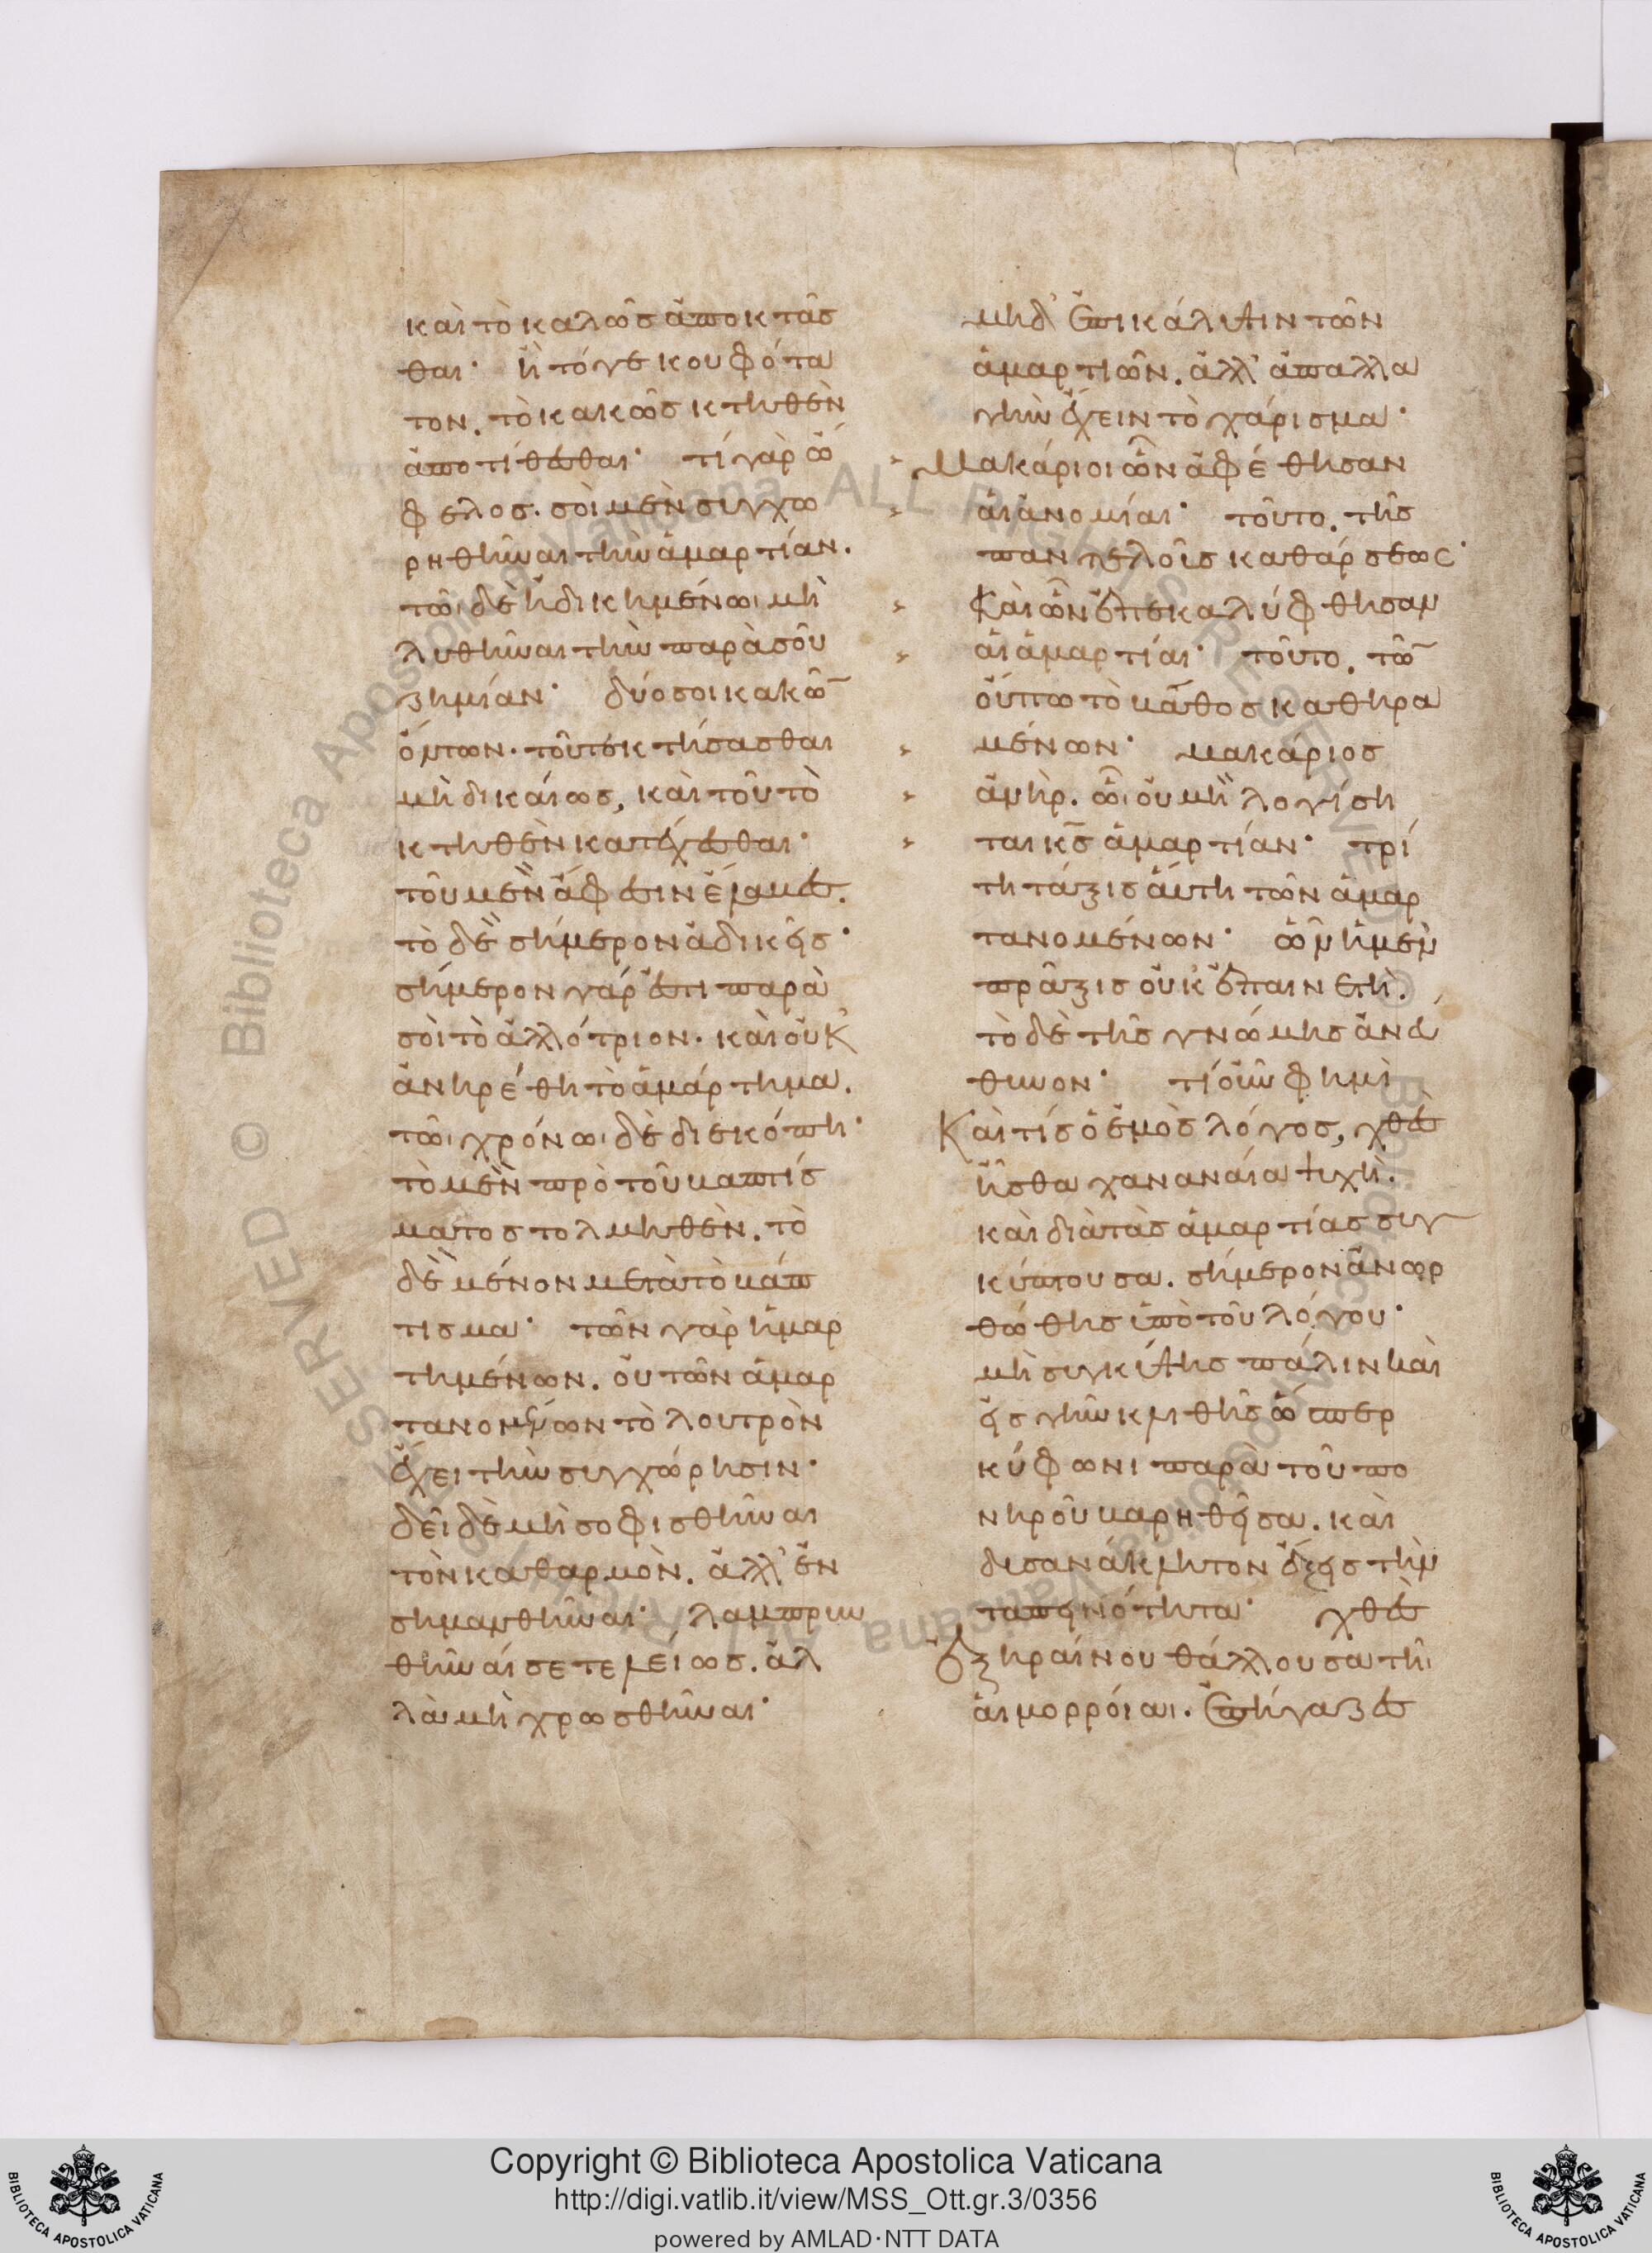 καὶ τὸ καλῶς ἀποκτᾶσ
θαι· ἢ τό γε κουφότα
τον. τὸ κακῶς κτηθὲν
ἀποτίθεσθαι· τί γὰρ ὄ
φελος. σοὶ μὲν συγχω
ρηθῆναι τὴν ἁμαρτίαν.
τῶι δὲ ἠδικημένωι μὴ
λυθῆναι τὴν παρὰ σοῦ
ζημίαν· δύο σοι κακῶ̅
ὄντων. τοῦ τὲ κτήσασθαι
μὴ δικαίως, καὶ τοῦ τὸ
κτηθὲν κατέχεσθαι·
τοῦ μὲν ἄφεσιν ἔλαβες.
τὸ δὲ σήμερον ἀδικεῖς·
σήμερον γάρ ἐστι παρὰ
σοὶ τὸ ἀλλότριον. καὶ οὐκ
ἀνηρέθη τὸ ἁμάρτημα.
τῶι χρόνωι δὲ διεκόπη·
τὸ μὲν πρὸ τοῦ βαπτίσ
ματος τολμηθὲν. τὸ
δὲ μένον μετὰ τὸ βάπ
τισμα· τῶν γὰρ ἡμαρ
τημένων. οὐ τῶν ἁμαρ
τανομένων τὸ λουτρὸν
ἔχει τὴν συγχώρησιν·
δεῖ δὲ μὴ σοφισθῆναι
τὸν καθαρμὸν. ἀλλ' ἐν
σημανθῆναι· λαμπρυν
θῆναί σε τελείως. ἀλ
λὰ μὴ χρωσθῆναι·
μηδ' ἐπικάλυψιν τῶν
ἁμαρτιῶν. ἀλλ' ἀπαλλα
γὴν ἔχειν τὸ χάρισμα·
Μακάριοι ὧν ἀφέθησαν
αἱ ἀνομίαι· τοῦτο. τῆς
παντελοῖς καθάρσεως·
Καὶ ὧν ἐπεκαλύφθησαν
αἱ ἁμαρτίαι· τοῦτο. τῶ̅
οὔπω τὸ βάθος καθηρα
μένων· μακάριος
ἀνὴρ. ὧι οὐ μὴ λογίση
ται κ̅ς ἁμαρτίαν· τρί
τη τάξις αὕτη τῶν ἁμαρ
τανομένων· ὧν ἡ μὲν
πρᾶξις οὐκ ἐπαινετὴ.
τὸ δὲ τῆς γνώμης ἀνεύ
θυνον· τί οὖν φημὶ
Καὶ τίς ὁ ἐμὸς λόγος, χθὲς
ἦσθα χαναναία ψυχὴ.
καὶ διὰ τὰς ἁμαρτίας συγ
κύπτουσα. σήμερον ἀνωρ
θώθης ὑπὸ τοῦ λόγου·
μὴ συγκύψης πάλιν καὶ
εἰς γῆν κριθῆς ὥσπερ
κύφωνι παρὰ τοῦ πο
νηροῦ βαρηθεῖσα. καὶ
δυσανάκλητον ἕξεις τὴν
ταπεινότητα· χθὲς
Ἐξηραίνου θάλλουσα τῆι
αἱμορροίαι. ἐπήγαζες
Copyright © Biblioteca Apostolica Vaticana
http://digi.vatlib.it/view/MSS_Ott.gr.3/0356
powered by AMLAD·NTT DATA